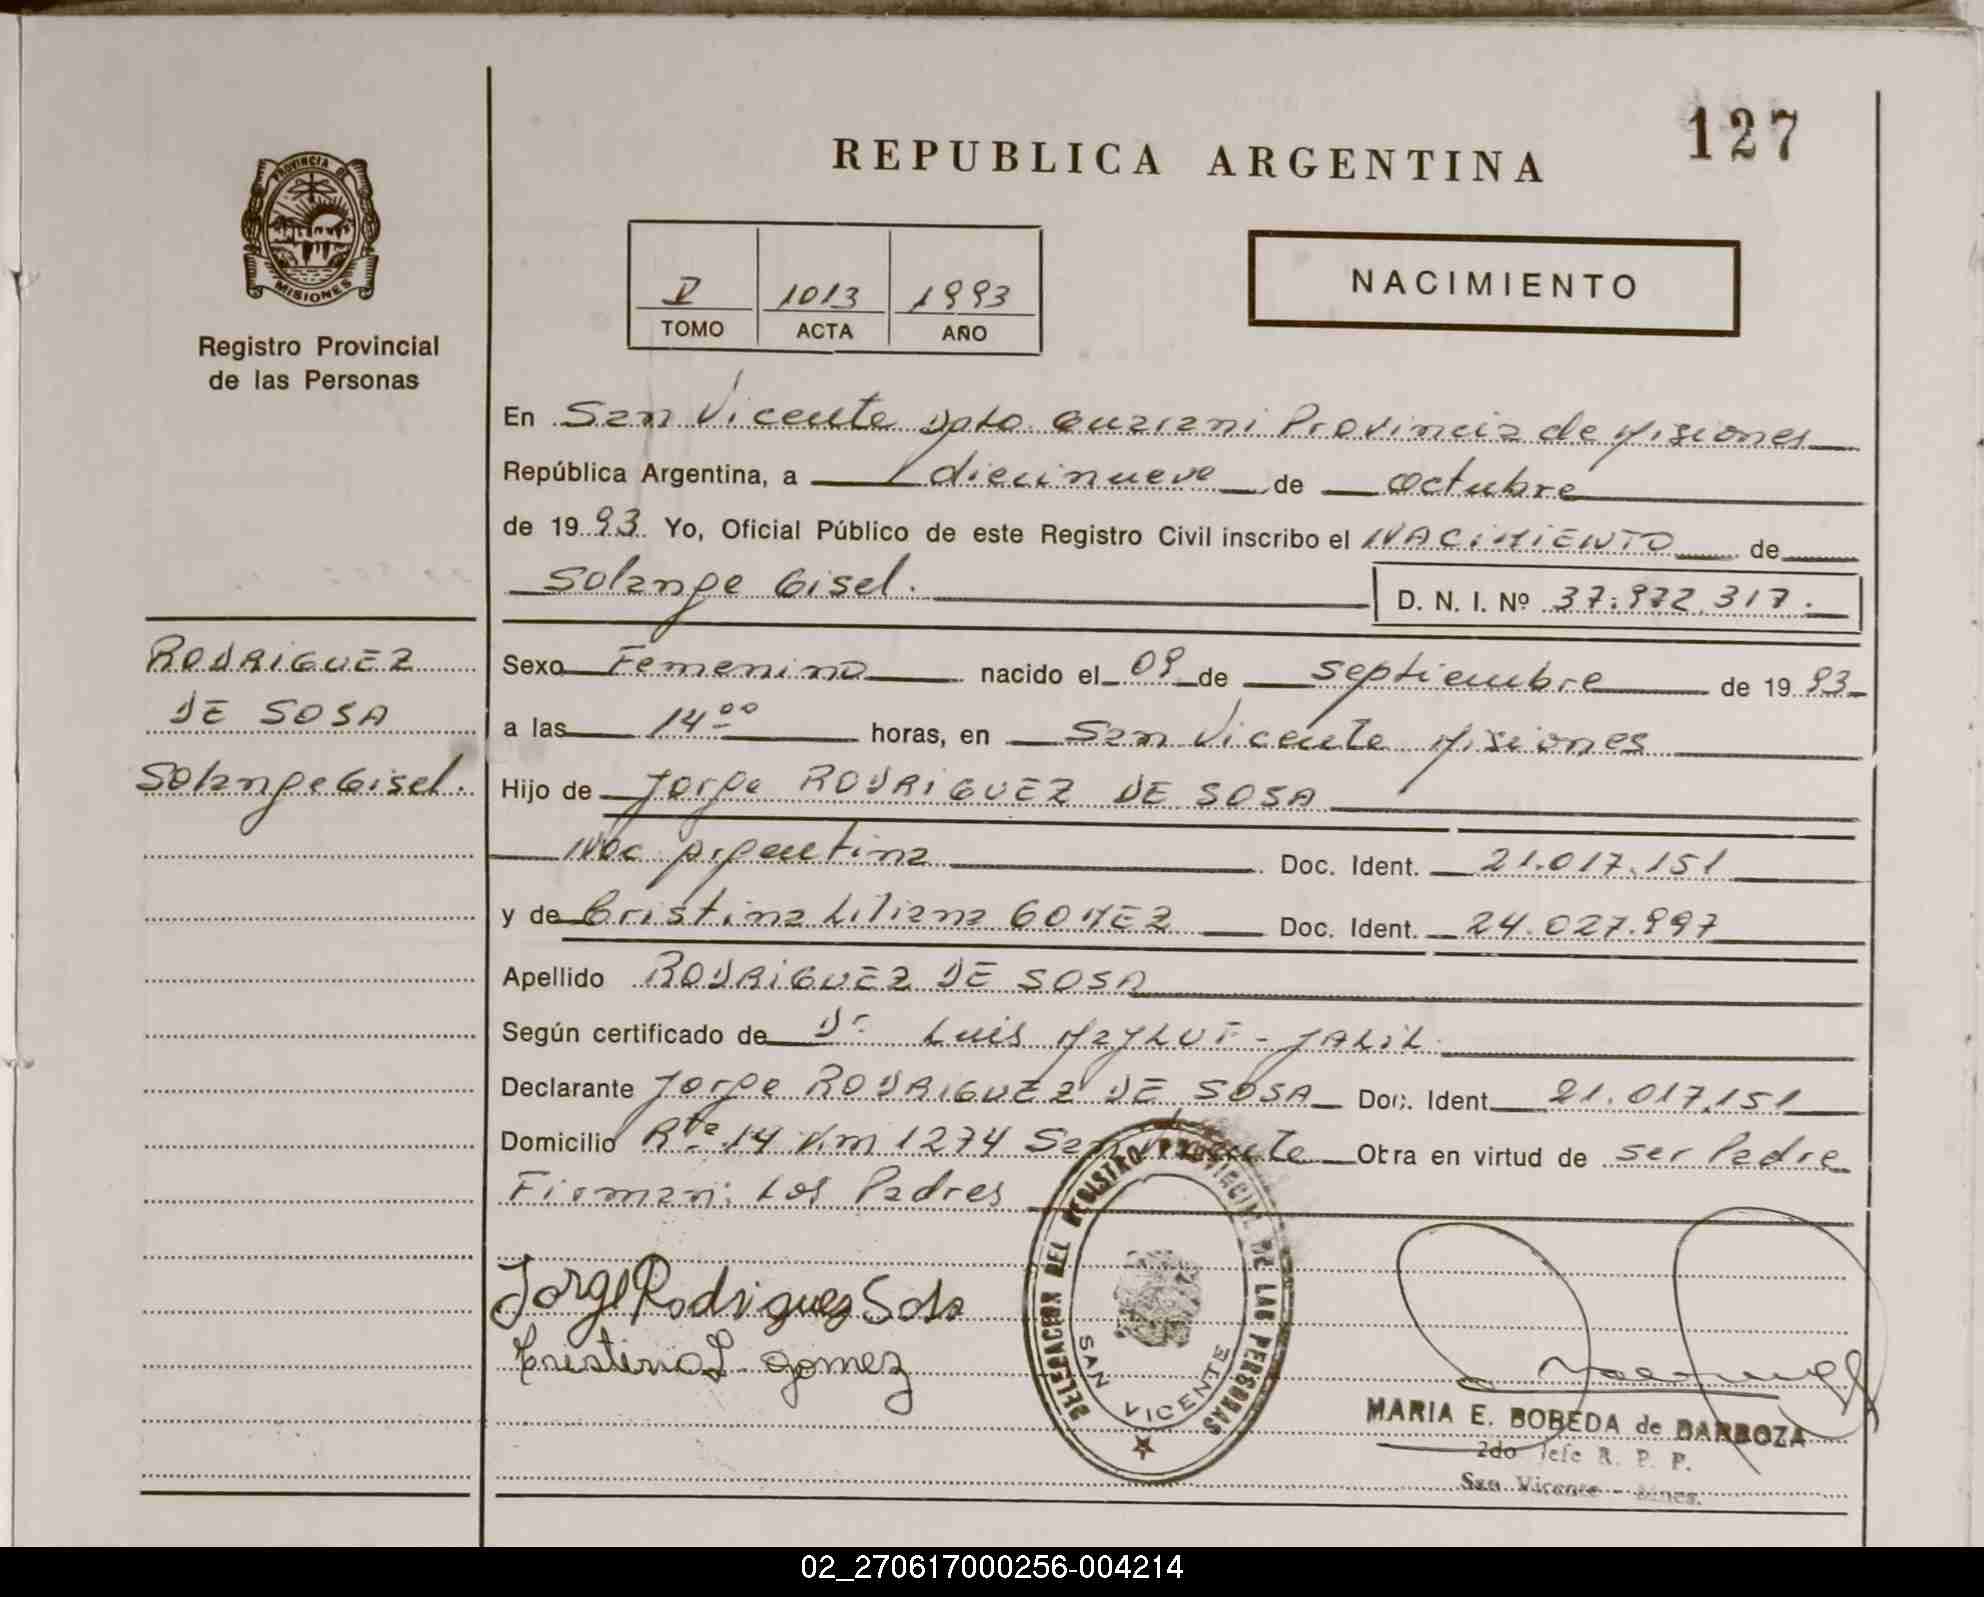 127
REPUBLICA ARGENTINA
PROVINCIA DE
MISIONES
Registro Provincial
de las Personas
I 1013 1993
TOMO ACTA AÑO
NACIMIENTO
En San Vicente Dpto. Guarani Provincia de Misiones
República Argentina, a diecinueve de octubre
de 1993 Yo, Oficial Público de este Registro Civil inscribo el NACIMIENTO de
Solange Gisel. D. N. I. Nº 37.972.317.
RODRIGUEZ
DE SOSA
Solange Gisel.
Sexo Femenino nacido el 09 de septiembre de 1993
a las 14 00 horas, en San Vicente Misiones
Hijo de Jorge RODRIGUEZ DE SOSA
Nac Argentina Doc. Ident. 21.017.151
y de Cristina Liliana GOMEZ Doc. Ident. 24.027.997
Apellido RODRIGUEZ DE SOSA
Según certificado de Dr. Luis - JALIL
Declarante Jorge RODRIGUEZ DE SOSA Doc. Ident. 21.017.151
Domicilio Rta 14 Km 1274 San Vicente Obra en virtud de ser Padre
Firman: Los Padres
Jorge Rodriguez Sosa
Cristina L gomez
DELEGACION DEL REGISTRO PROVINCIAL DE LAS PERSONAS
SAN VICENTE
MARIA E. BOBEDA de BARBOZA
2do Jefe R. P. P.
San Vicente - Mnes.
02_270617000256-004214